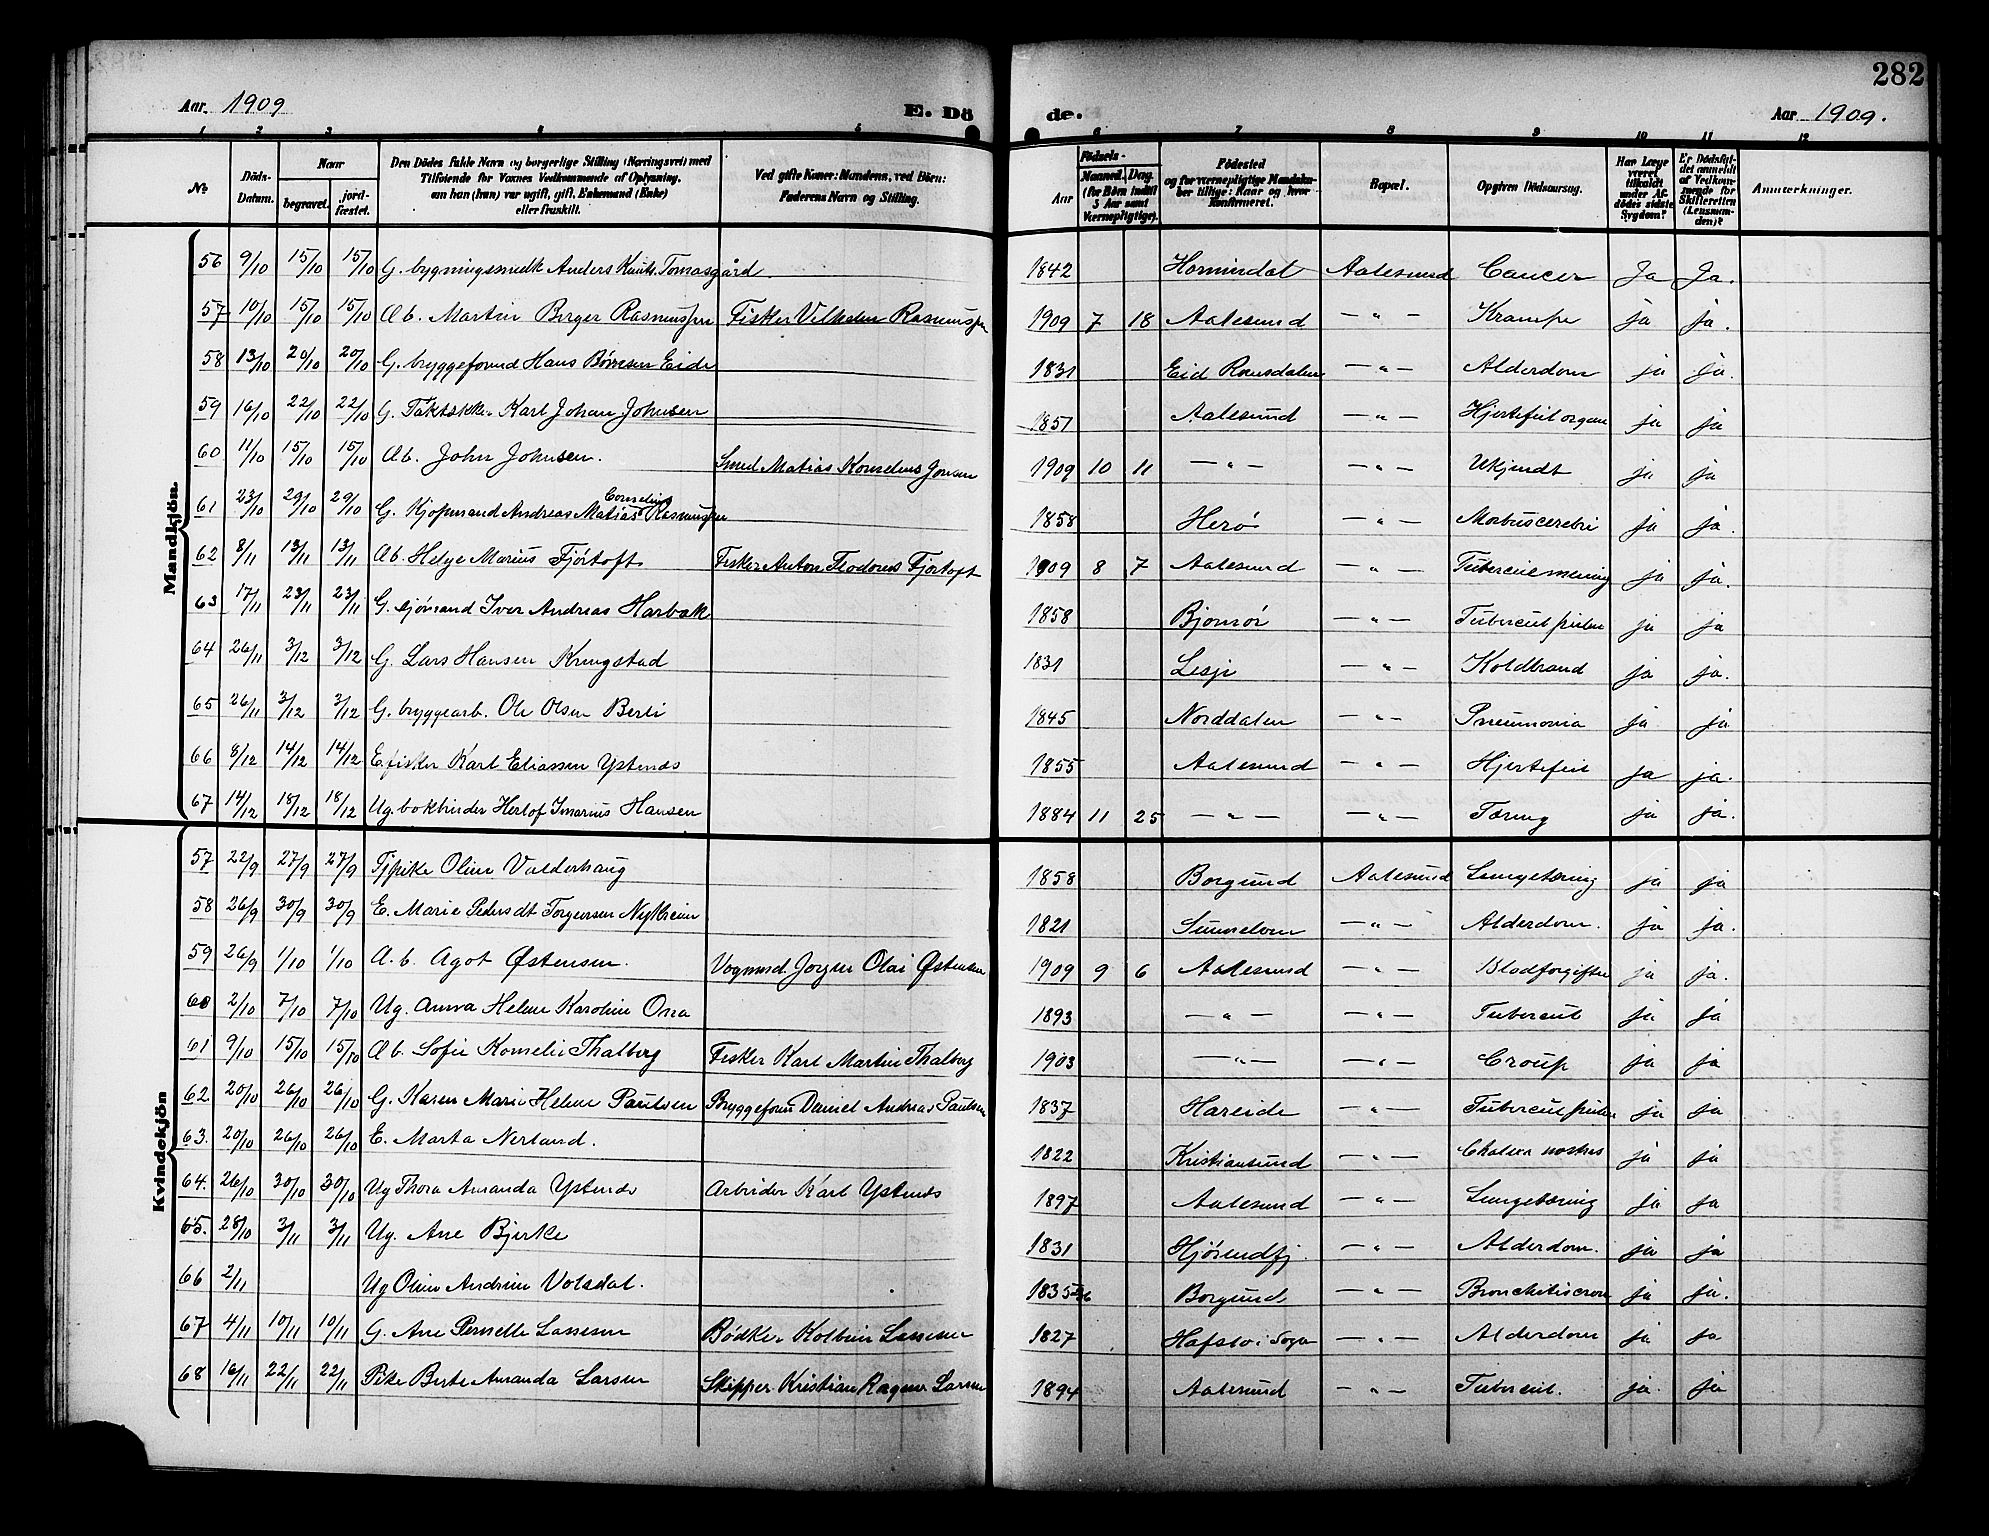 282
Aar. 1909
E. Dö
de.
Aar 1909.
1 2 3 4 5 6 7 8 9 10 11 12
No
Döds-Datum.
Naar
begravet.
jord-fæstet.
Den Dödes fulde Navn og borgerlige Stilling (Næringsvei) med
Tilföiende for Voxnes Vedkommende af Oplysning,
om han (hun) var ugift, gift, Enkemand (Enke)
eller fraskilt.
Ved gifte Koner: Mandens, ved Börn:
Faderens Navn og Stilling.
Födsels-
Aar
Maaned. Dag.
(for Börn indtil
5 Aar samt
Værnepligtige).
Födested
og for værnepligtige Mandskaber tillige: Naar og hvor
konfirmeret.
Bopæl.
Opgiven Dödsaarsag.
Har Læge
været
tilkaldt
under Afdödes sidste
Sygdom?
Er Dödsfaldet anmeldt
af Vedkommende for
Skifteretten
(Lensmanden)?
Anmærkninger.
Mandkjön.
56 9/10 15/10 15/10 G. bygningssnedk Anders Knuts. Tomasgård 1842 Hornindal Aalesund Cancer Ja Ja.
57 10/10 15/10 15/10 Æb. Martin Berger Rasmussen Fisker Vilhelm Rasmussen 1909 7 18 Aalesund — " — Krampe ja ja.
58 13/10 20/10 20/10 G. bryggeformd Hans Børresen Eide 1831 Eid Romsdalen — " — Alderdom ja ja.
59 16/10 22/10 22/10 G. Karl Johan Johnsen 1851 Aalesund — " — Hjertefeil organ ja ja
60 11/10 15/10 15/10 Æb. John Johnsen. Smed Matias Kornelius 1909 10 11 — " — — " — Ukjendt ja ja
61 23/10 29/10 29/10 G. Kjøpmand Andreas Matias Cornelius Rasmussen 1858 Herø — " — Morbus cerebri ja ja.
62 8/11 13/11 13/11 Æb. Helge Marius Fjørtoft Fisker Anton Teodorus Fjørtoft 1909 8 7 Aalesund — " — Tubercul mening ja ja.
63 17/11 23/11 23/11 G. sjömand Iver Andreas Harbak 1858 Bjørnør — " — Tubercul pulm ja ja
64 26/11 3/12 3/12 G. Lars Hansen Kringstad 1831 Lesje — " — Koldbrand ja ja.
65 26/11 3/12 3/12 G. bryggearb. Ole Olsen Berli 1845 Norddalen — " — Pneumonia ja ja
66 8/12 14/12 14/12 E. fisker Karl Eliassen Ystenes 1855 Aalesund — " — Hjertefeil ja ja.
67 14/12 18/12 18/12 Ug. bokbinder Herlof Imarius Hansen 1884 11 25 — " — — " — Tæring ja ja.
Kvindekjön
57 22/9 27/9 27/9 Tjpike Oline Valderhaug 1858 Borgund Aalesund Lungetæring ja ja
58 26/9 30/9 30/9 E. Marie Pedersdt Torgersen Nytheim 1821 Sunnelven — " — Alderdom. ja ja.
59 26/9 1/10 1/10 Æ.b. Agot Østensen. Vognmd Jorgen Olai Østensen 1909 9 6 Aalesund — " — Blodforgiftn ja ja.
60 2/10 7/10 7/10 Ug. Anna Helene Karoline Orra 1893 — " — — " — Tubercul ja ja
61 9/10 15/10 15/10 Æb. Sofie Kornelie Thalberg Fisker Karl Martin Thalberg 1903 — " — — " — Croup ja ja
62 20/10 26/10 26/10 G. Karen Marie Helene Paulsen Bryggeform Daniel Andreas Paulsen 1837 Hareide — " — Tubercul pulm ja ja
63. 20/10 26/10 26/10 E. Marta Nerland. 1822 Kristiansund — " — Cholera nostras ja ja
64. 26/10 30/10 30/10 Ug Thora Amanda Ystenes Arbeider Karl Ystenes 1897 Aalesund — " — Lungetæring ja ja
65. 28/10 3/11 3/11 Ug. Ane Bjerke 1831 Hjørendfj. — " — Alderdom. ja ja
66 2/11 Ug Oline Andrine Volsdal. 1835 Borgund — " — Bronchitis cron ja ja.
67 4/11 10/11 10/11 G. Ane Pernelle Lassesen Bødker Kolbein Lassesen 1827 Hafslo i Sogn — " — Alderdom ja ja
68 16/11 22/11 22/11 Pike Berte Amanda Larsen Skipper Kristian Ragnv Larsen 1894 Aalesund — " — Tubercul. ja. ja